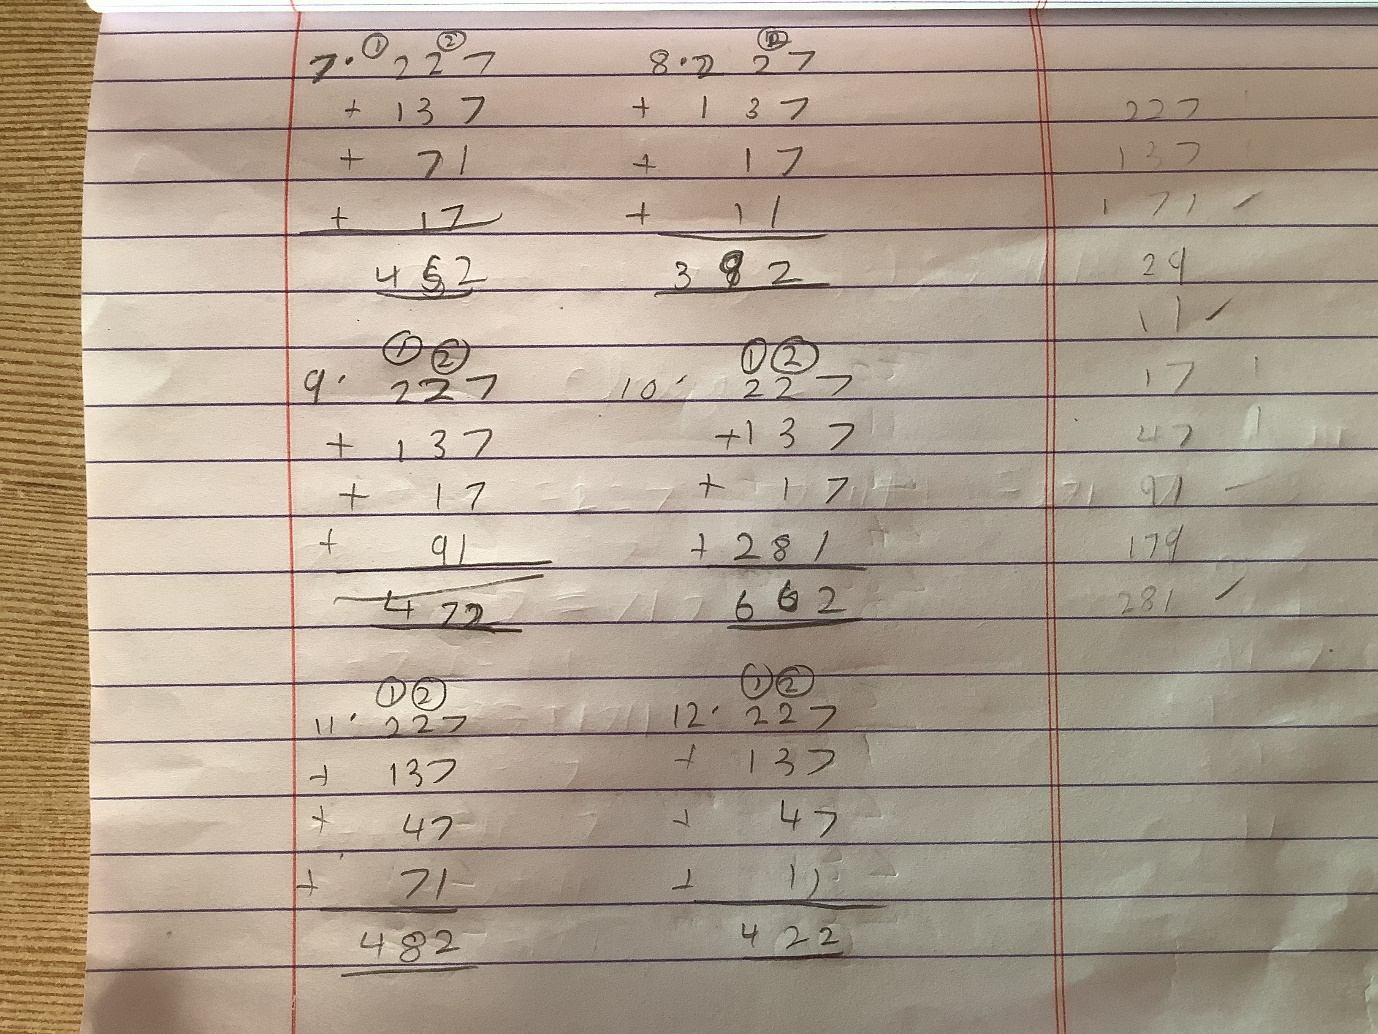 ① ②
7. 227
+ 137
+ 71
+ 17
452
②
8. 2 27
+ 1 37
+ 17
+ 11
382
① ②
9. 227
+ 137
+ 17
+ 91
472
① ②
10. 227
+137
+ 17
+ 281
662
① ②
11. 227
+ 137
+ 47
+ 71
482
① ②
12. 227
+ 137
+ 47
+ 11
422
227
137
171 ✓
29
11 ✓
17
47
91
179
281 ✓